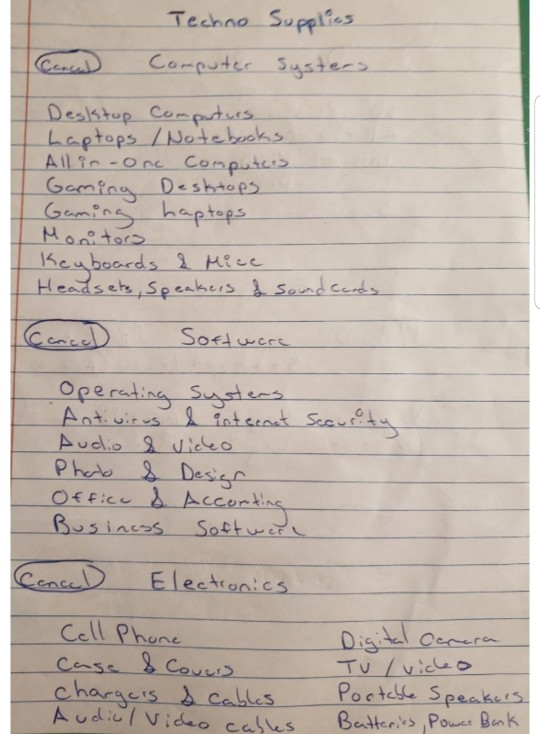 Techno Supplies
Cancel Computer Systems
Desktop Computers
Laptops / Notebooks
All in-one Computers
Gaming Desktops
Gaming Laptops
Monitors
Keyboards & Mice
Headsets, Speakers & Soundcards
Cancel Software
Operating Systems
Antivirus & internet Security
Audio & Video
Photo & Design
Office & Accounting
Business Software
Cancel Electronics
Cell Phone Digital Camera
Case & Covers TV / video
Chargers & Cables Portable Speakers
Audio / Video cables Batteries, Power Bank